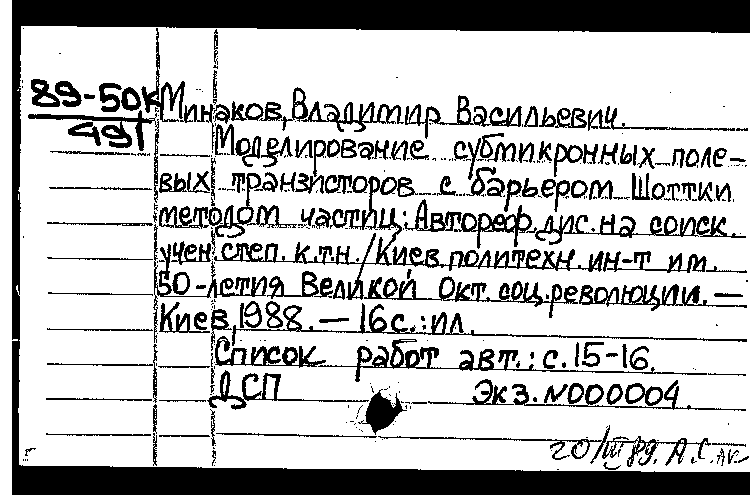 89-50к Минаков, Владимир Васильевич.
491
Моделирование субмикронных поле-
вых транзисторов с барьером Шоттки
методом частиц: Автореф. дис. на соиск.
учен степ. к.т.н. / Киев. политехн. ин-т им.
50-летия Великой Окт. соц. революции. —
Киев, 1988. — 16 с.: ил.
Список работ авт.: с. 15-16.
ДСП Экз. N000004.
20/III 89. А.С.